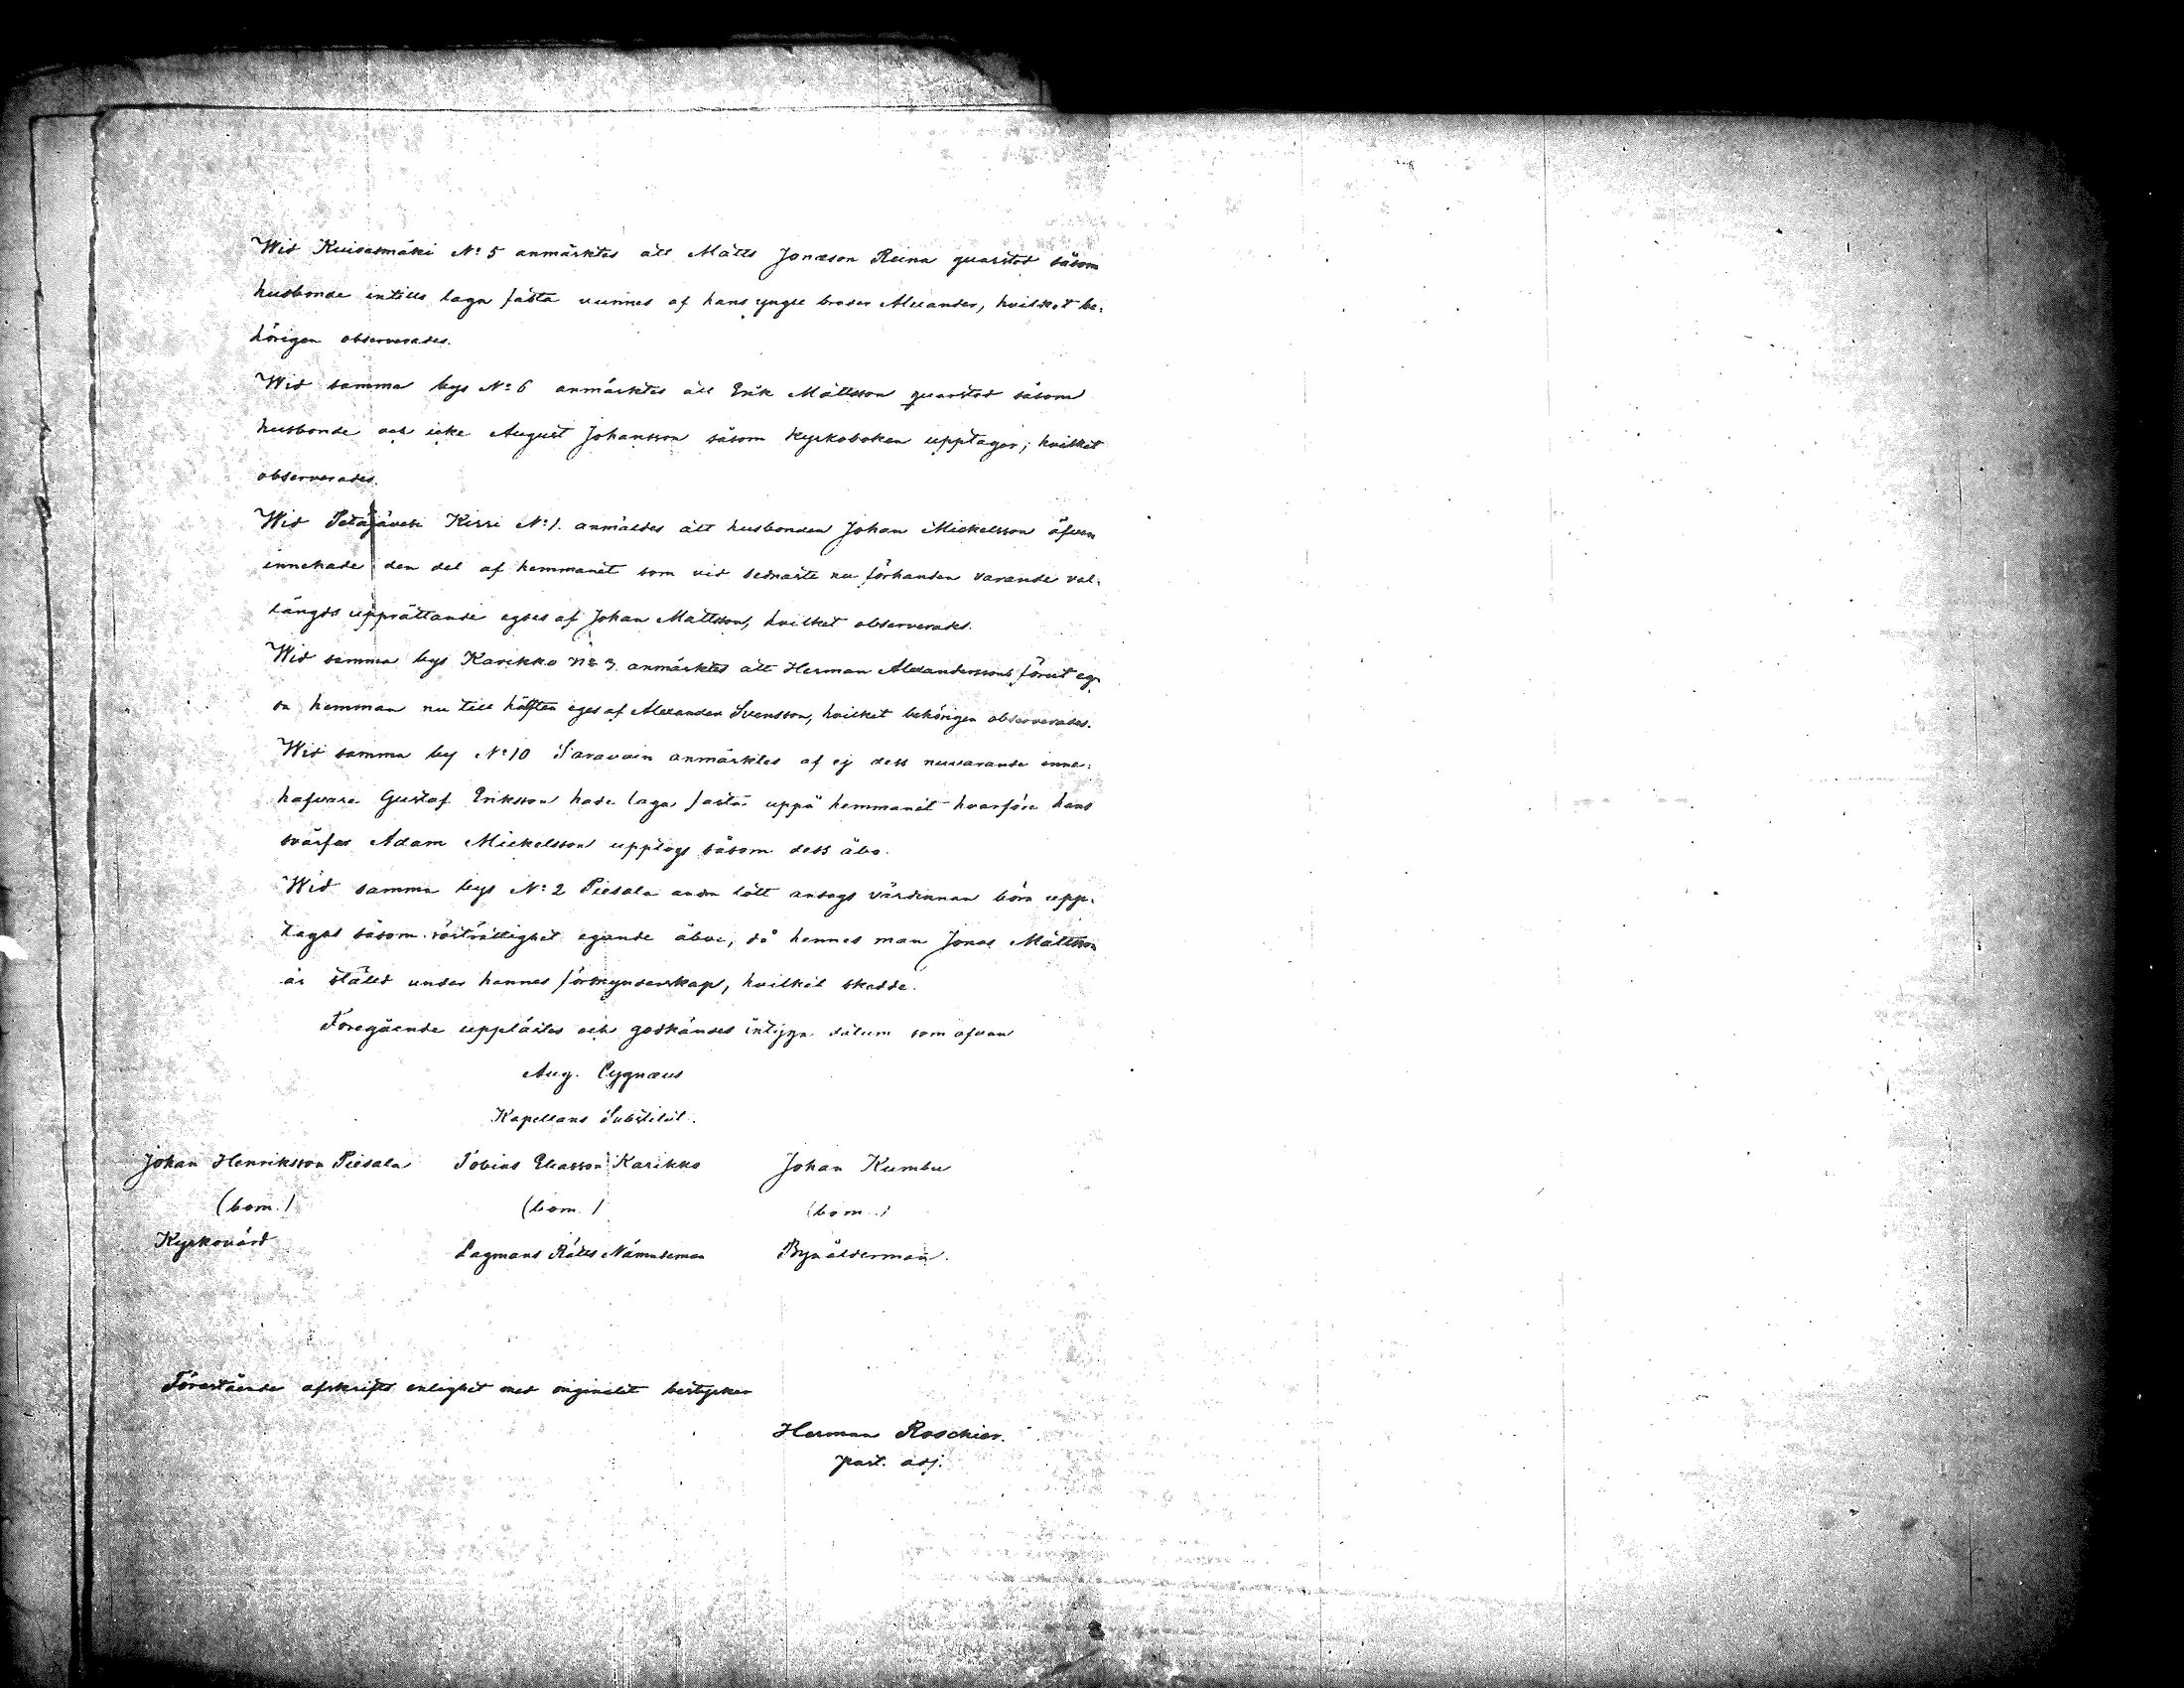 Wid Kuisasmäki No 5 anmärktes att Matts Jonasson Reina quarstod såsom
husbonde intills laga fasta vunnes af hans yngre broder Alexander, hvilket be-
hörigen observerades.
Wid samma bys No 6 anmärktes att Erik Mattsson quarstod såsom
husbonde och icke August Johansson såsom kyrkoboken upptager; hvilket
observerades.
Wid Petäjävesi Kirri No 1. anmäldes att husbonden Johan Mickelsson äfven
innehade den del af hemmanet som vid sednaste nu förhanden varande val-
längds upprättande egdes af Johan Mattsson, hvilket observerades.
Wid samma bys Karikko No 3. anmärktes att Herman Alexanderssons förut eg-
da hemman nu till hälften eges af Alexander Svensson, hvilket behörigen observerades.
Wid samma by No 10 Saravain anmärktes af ej dess nuvarande inne-
hafvare Gustaf Eriksson hade laga fasta uppå hemmanet hvarföre hans
svärfar Adam Mickelsson upptogs såsom dess åbo.
Wid samma bys No 2 Piesala andra lott ansågs värdinnan böra upp-
tagas såsom rösträttighet egande åboe, då hennes man Jonas Mattsson
är ställd under hennes förmynderskap, hvilket skedde.
Föregående upplästes och godkändes intygga datum som ofvan
Aug. Cygnæus
Kapellans Substitut.
Johan Henriksson Piesala Tobias Eliasson Karikko Johan Kumbu
(bom.) (bom.) (bom.)
Kyrkovärd Lagmans Rätts Nämndeman Byaålderman.
Förestående afskrifts enlighet med originalet bestyrker
Herman Roschier.
past. adj.